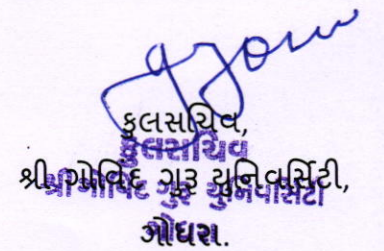 કુલસચિવ,
કુલસચિવ
શ્રી. ગોવિંદ ગુરૂ યુનિવર્સિટી,
શ્રી ગોવિંદ ગુરૂ યુનિવર્સિટી
ગોધરા.
ગોધરા